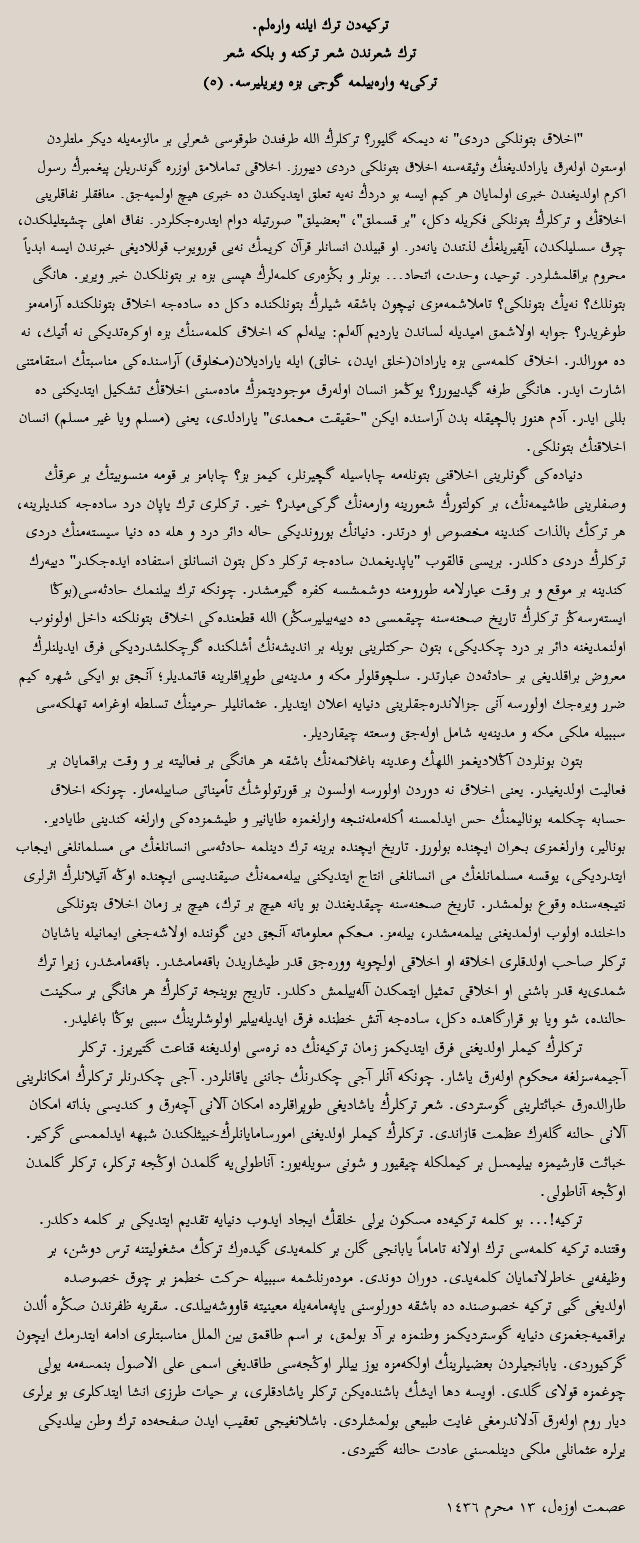 تركیه‌دن ترك ایلنه واره‌لم.
ترك شعرندن شعر تركنه و بلكه شعر
تركی‌یه واره‌بیلمه گوجی بزه ویریلیرسه. (٥)
"اخلاق بتونلكی دردی" نه دیمكه گلیور؟ تركلرڭ الله طرفندن طوقوسی شعرلی بر مالزمه‌یله دیكر ملتلردن
اوستون اوله‌رق یارادلدیغنڭ وثیقه‌سنه اخلاق بتونلكی دردی دییورز. اخلاقی تماملامق اوزره گوندریلن پیغمبرڭ رسول
اكرم اولدیغندن خبری اولمایان هر كیم ایسه بو دردڭ نه‌یه تعلق ایتدیكندن ده خبری هیچ اولمیه‌جق. منافقلر نفاقلرینی
اخلاقڭ و تركلرڭ بتونلكی فكریله دكل، "بر قسملق"، "بعضیلق" صورتیله دوام ایتدره‌جكلردر. نفاق اهلی چشیتلیلكدن،
چوق سسلیلكدن، آیقیریلغڭ لذتندن یانه‌در. او قبیلدن انسانلر قرآن كریمڭ نه‌یی قورویوب قوللادیغی خبرندن ایسه ابدیاً
محروم براقلمشلردر. توحید، وحدت، اتحاد... بونلر و بڭزه‌ری كلمه‌لرڭ هپسی بزه بر بتونلكدن خبر ویریر. هانگی
بتونلك؟ نه‌یڭ بتونلكی؟ تاملاشمه‌مزی نیچون باشقه شیلرڭ بتونلكنده دكل ده ساده‌جه اخلاق بتونلكنده آرامه‌مز
طوغریدر؟ جوابه اولاشمق امیدیله لساندن یاردیم آله‌لم: بیله‌لم كه اخلاق كلمه‌سنڭ بزه اوكره‌تدیكی نه أتیك، نه
ده مورالدر. اخلاق كلمه‌سی بزه یارادان(خلق ایدن، خالق) ایله یارادیلان(مخلوق) آراسنده‌كی مناسبتڭ استقامتنی
اشارت ایدر. هانگی طرفه گیدییورز؟ یوڭمز انسان اوله‌رق موجودیتمزڭ ماده‌سنی اخلاقڭ تشكیل ایتدیكنی ده
بللی ایدر. آدم هنوز بالچیقله بدن آراسنده ایكن "حقیقت محمدی" یارادلدی، یعنی (مسلم ویا غیر مسلم) انسان
اخلاقنڭ بتونلكی.
دنیاده‌كی گونلرینی اخلاقنی بتونله‌مه چاباسیله گچیرنلر، كیمز بز؟ چابامز بر قومه منسوبیتڭ بر عرقڭ
وصفلرینی طاشیمه‌نڭ، بر كولتورڭ شعورینه وارمه‌نڭ گركی‌میدر؟ خیر. تركلری ترك یاپان درد ساده‌جه كندیلرینه،
هر تركڭ بالذات كندینه مخصوص او درتدر. دنیانڭ بوروندیكی حاله دائر درد و هله ده دنیا سیسته‌منڭ دردی
تركلرڭ دردی دكلدر. بریسی قالقوب "یاپدیغمدن ساده‌جه تركلر دكل بتون انسانلق استفاده ایده‌جكدر" دییه‌رك
كندینه بر موقع و بر وقت عیارلامه طورومنه دوشمشسه كفره گیرمشدر. چونكه ترك بیلنمك حادثه‌سی(بوڭا
ایسته‌رسه‌ڭز تركلرڭ تاریخ صحنه‌سنه چیقمسی ده دییه‌بیلیرسڭز) الله قطعنده‌كی اخلاق بتونلكنه داخل اولونوب
اولنمدیغنه دائر بر درد چكدیكی، بتون حركتلرینی بویله بر اندیشه‌نڭ أشلكنده گرچكلشدردیكی فرق ایدیلنلرڭ
معروض براقلدیغی بر حادثه‌دن عبارتدر. سلچوقلولر مكه و مدینه‌یی طوپراقلرینه قاتمدیلر؛ آنجق بو ایكی شهره كیم
ضرر ویره‌جك اولورسه آنی جزالاندره‌جقلرینی دنیایه اعلان ایتدیلر. عثمانلیلر حرمینڭ تسلطه اوغرامه تهلكه‌سی
سببیله ملكی مكه و مدینه‌یه شامل اوله‌جق وسعته چیقاردیلر.
بتون بونلردن آڭلادیغمز اللهڭ وعدینه باغلانمه‌نڭ باشقه هر هانگی بر فعالیته یر و وقت براقمایان بر
فعالیت اولدیغیدر. یعنی اخلاق نه دوردن اولورسه اولسون بر قورتولوشڭ تأمیناتی صاییله‌ماز. چونكه اخلاق
حسابه چكلمه بونالیمنڭ حس ایدلمسنه أكله‌مله‌ننجه وارلغمزه طایانیر و طیشمزده‌كی وارلغه كندینی طایادیر.
بونالیر، وارلغمزی بحران ایچنده بولورز. تاریخ ایچنده برینه ترك دینلمه حادثه‌سی انسانلغڭ می مسلمانلغی ایجاب
ایتدردیكی، یوقسه مسلمانلغڭ می انسانلغی انتاج ایتدیكنی بیله‌ممه‌نڭ صیقندیسی ایچنده اوڭه آتیلانلرڭ اثرلری
نتیجه‌سنده وقوع بولمشدر. تاریخ صحنه‌سنه چیقدیغندن بو یانه هیچ بر ترك، هیچ بر زمان اخلاق بتونلكی
داخلنده اولوب اولمدیغنی بیلمه‌مشدر، بیله‌مز. محكم معلوماته آنجق دین گوننده اولاشه‌جغی ایمانیله یاشایان
تركلر صاحب اولدقلری اخلاقه او اخلاقی اولچویه ووره‌جق قدر طیشاریدن باقه‌مامشدر. باقه‌مامشدر، زیرا ترك
شمدی‌یه قدر باشنی او اخلاقی تمثیل ایتمكدن آله‌بیلمش دكلدر. تاریخ بوینجه تركلرڭ هر هانگی بر سكینت
حالنده، شو ویا بو قرارگاهده دكل، ساده‌جه آتش خطنده فرق ایدیله‌بیلیر اولوشلرینڭ سببی بوڭا باغلیدر.
تركلرڭ كیملر اولدیغنی فرق ایتدیكمز زمان تركیه‌نڭ ده نره‌سی اولدیغنه قناعت گتیریرز. تركلر
آجیمه‌سزلغه محكوم اوله‌رق یاشار. چونكه آنلر آجی چكدرنڭ جاننی یاقانلردر. آجی چكدرنلر تركلرڭ امكانلرینی
طارالده‌رق خبائتلرینی گوستردی. شعر تركلرڭ یاشادیغی طوپراقلرده امكان آلانی آچه‌رق و كندیسی بذاته امكان
آلانی حالنه گله‌رك عظمت قازاندی. تركلرڭ كیملر اولدیغنی امورسامایانلرڭ خبیثلكندن شبهه ایدلممسی گركیر.
خبائت قارشیمزه بیلیمسل بر كیملكله چیقیور و شونی سویله‌یور: آناطولی‌یه گلمدن اوڭجه تركلر، تركلر گلمدن
اوڭجه آناطولی.
تركیه!... بو كلمه تركیه‌ده مسكون یرلی خلقڭ ایجاد ایدوب دنیایه تقدیم ایتدیكی بر كلمه دكلدر.
وقتنده تركیه كلمه‌سی ترك اولانه تاماماً یابانجی گلن بر كلمه‌یدی گیده‌رك تركڭ مشغولیتنه ترس دوشن، بر
وظیفه‌یی خاطرلاتمایان كلمه‌یدی. دوران دوندی. موده‌رنلشمه سببیله حركت خطمز بر چوق خصوصده
اولدیغی گبی تركیه خصوصنده ده باشقه دورلوسنی یاپه‌مامه‌یله معینیته قاووشه‌بیلدی. سقریه ظفرندن صڭره ألدن
براقمیه‌جغمزی دنیایه گوستردیكمز وطنمزه بر آد بولمق، بر اسم طاقمق بین الملل مناسبتلری ادامه ایتدرمك ایچون
گركیوردی. یابانجیلردن بعضیلرینڭ اولكه‌مزه یوز ییللر اوڭجه‌سی طاقدیغی اسمی علی الاصول بنمسه‌مه یولی
چوغمزه قولای گلدی. اویسه دها ایشڭ باشنده‌یكن تركلر یاشادقلری، بر حیات طرزی انشا ایتدكلری بو یرلری
دیار روم اوله‌رق آدلاندرمغی غایت طبیعی بولمشلردی. باشلانغیجی تعقیب ایدن صفحه‌ده ترك وطن بیلدیكی
یرلره عثمانلی ملكی دینلمسنی عادت حالنه گتیردی.
عصمت اوزه‌ل، ١٣ محرم ١٤٣٦